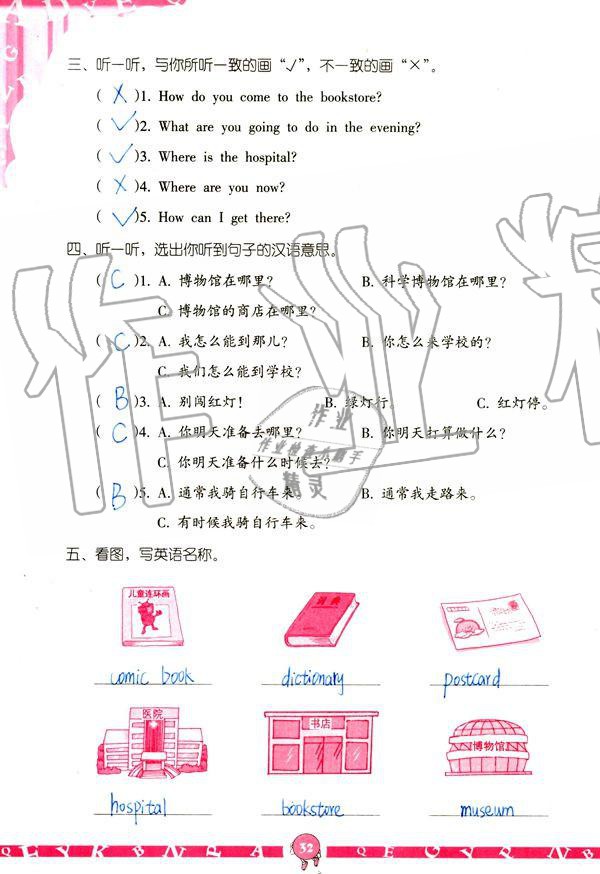 三、听一听，与你所听一致的画“√”，不一致的画“×”。
( X )1. How do you come to the bookstore?
( ✓ )2. What are you going to do in the evening?
( ✓ )3. Where is the hospital?
( X )4. Where are you now?
( ✓ )5. How can I get there?
四、听一听，选出你听到句子的汉语意思。
( C )1. A. 博物馆在哪里? B. 科学博物馆在哪里?
C. 博物馆的商店在哪里?
( C )2. A. 我怎么能到那儿? B. 你怎么来学校的?
C. 我们怎么能到学校?
( B )3. A. 别闯红灯! B. 绿灯行。 C. 红灯停。
( C )4. A. 你明天准备去哪里? B. 你明天打算做什么?
C. 你明天准备什么时候去?
( B )5. A. 通常我骑自行车来。 B. 通常我走路来。
C. 有时候我骑自行车来。
五、看图，写英语名称。
儿童连环画 词典
comic book dictionary postcard
医院 书店 博物馆
hospital bookstore museum
32
作业
作业检查小帮手
精灵